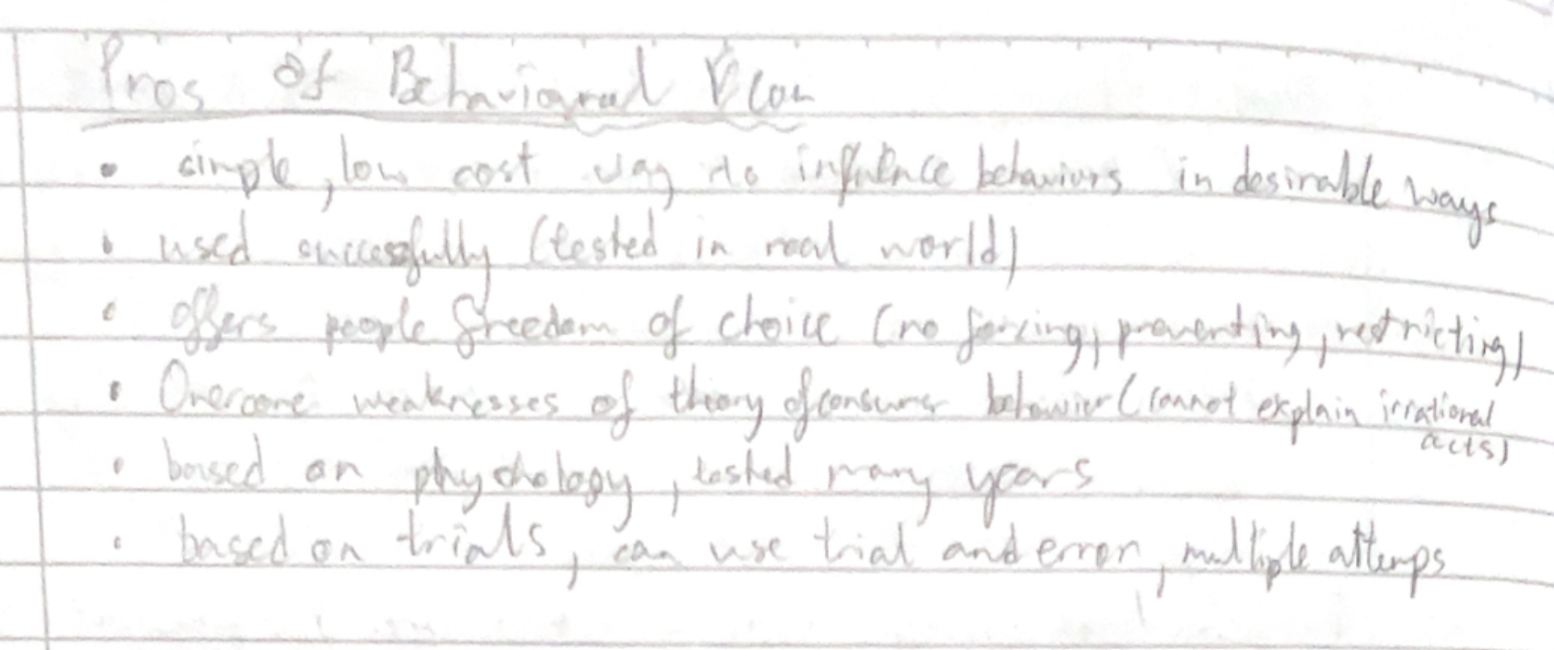 Pros of Behavioural Econ
• simple, low cost way to influence behaviors in desirable ways
• used successfully (tested in real world)
• offers people freedom of choice (no forcing, preventing, restricting)
• Overcome weaknesses of theory of consumer behavior (cannot explain irrational
acts)
• based on phychology, tested many years
• based on trials, can use trial and error, multiple attemps